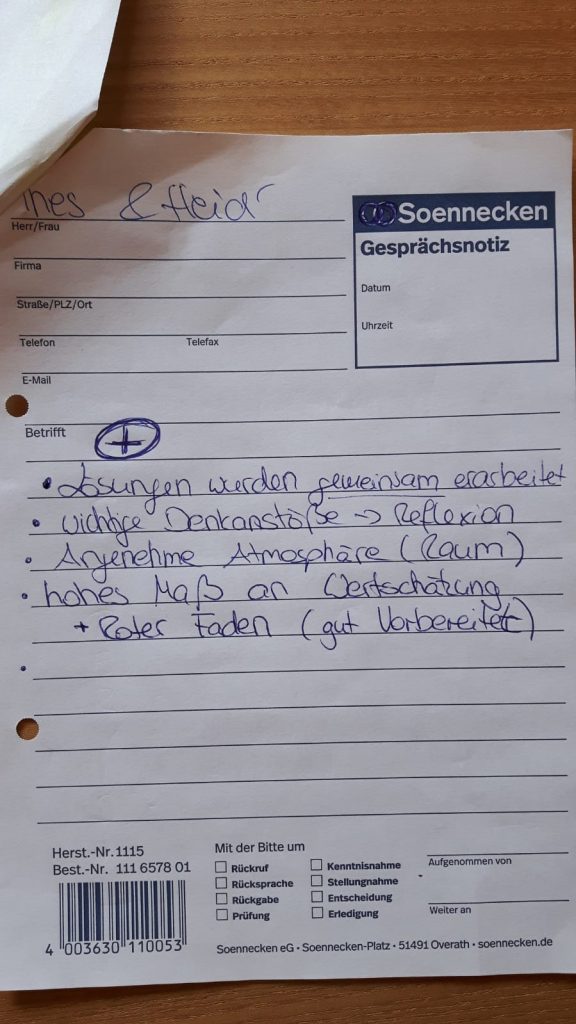 & Heidi
Herr/Frau
Soennecken
Gesprächsnotiz
Firma
Datum
Straße/PLZ/Ort
Uhrzeit
Telefon Telefax
E-Mail
Betrifft +
• Lösungen werden gemeinsam erarbeitet
• wichtige Denkanstöße → Reflexion
• Angenehme Atmosphäre (Raum)
• hohes Maß an Wertschätzung
+ Roter Faden (gut Vorbereitet)
•
Herst.-Nr. 1115
Best.-Nr. 111 6578 01
4 003630 110053
Mit der Bitte um
Rückruf
Rücksprache
Rückgabe
Prüfung
Kenntnisnahme
Stellungnahme
Entscheidung
Erledigung
Aufgenommen von
Weiter an
Soennecken eG • Soennecken-Platz • 51491 Overath • soennecken.de